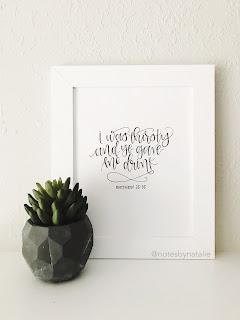 I was thirsty
and ye gave
me drink
MATTHEW 25:35
@notesbynatalie